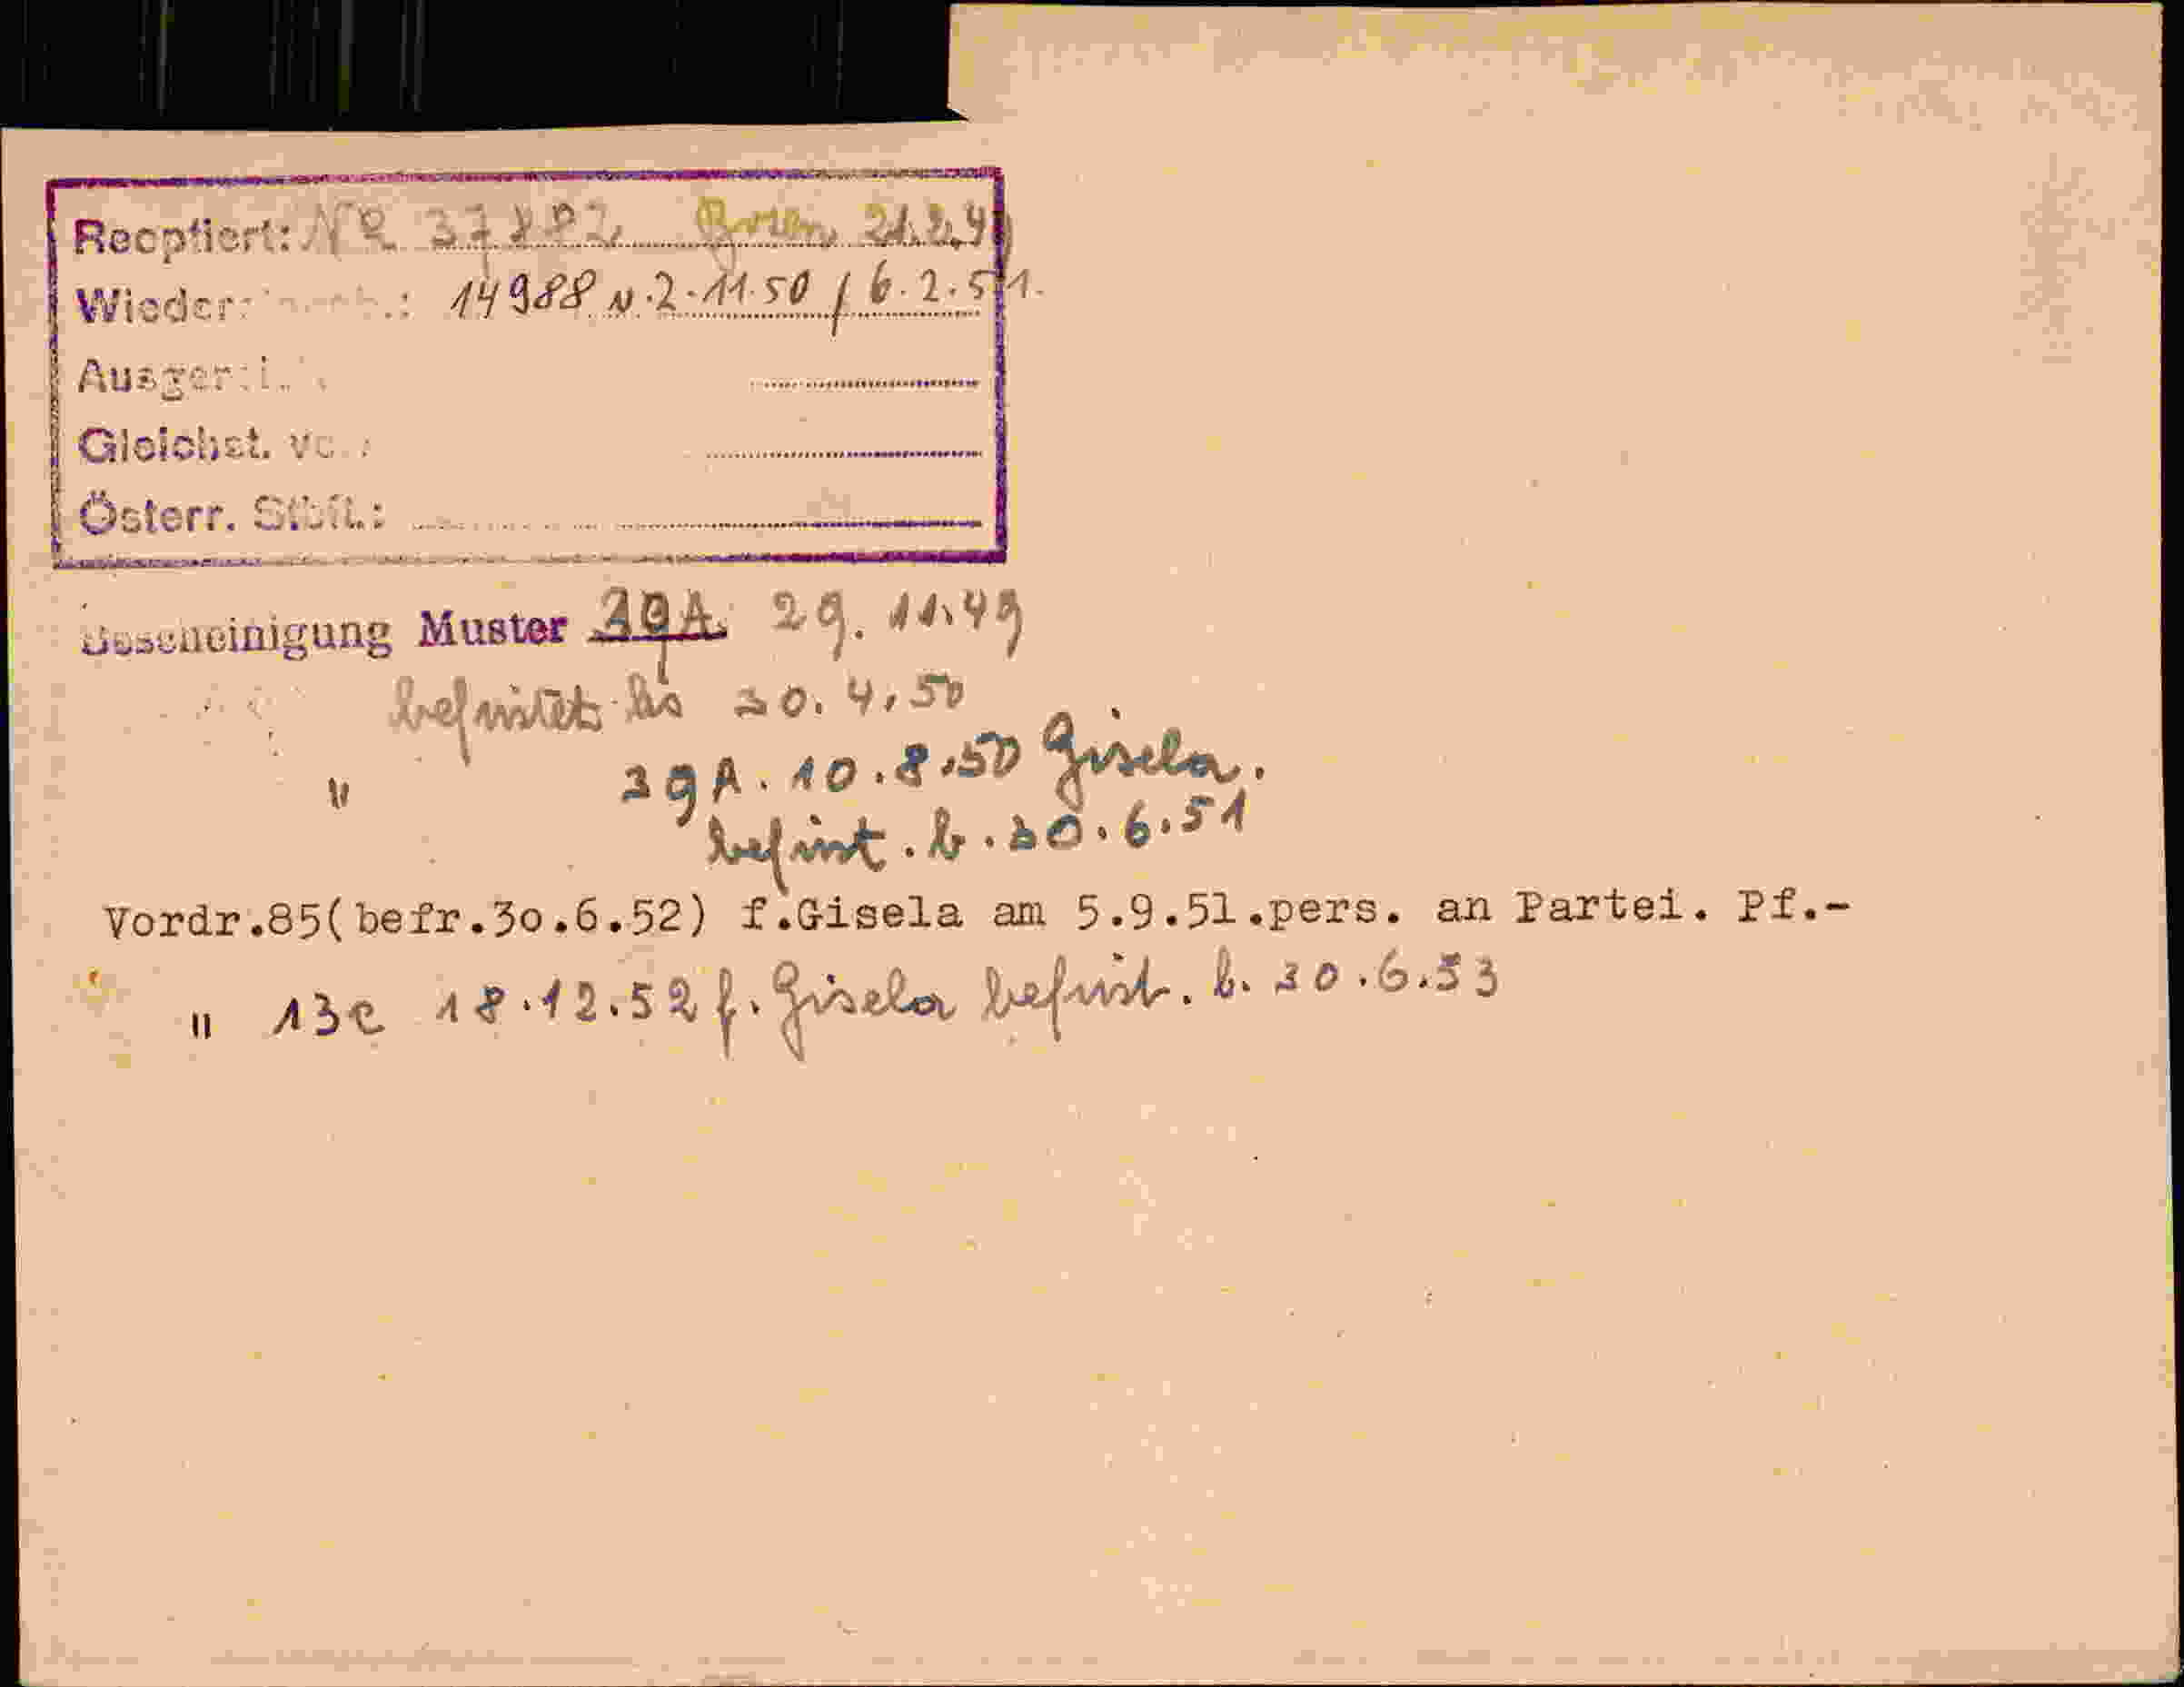 Reoptiert: No Bozen 21.2.49
14988 v. 2.11.50 / 6.2.51.
Gleichst.
Österr. Stbft.:
Bescheinigung Muster 39A. 29.11.49
befristet bis 30.4.50
" 39A. 10.8.50 Gisela.
befrist. b. 30.6.51
Vordr.85(befr.3o.6.52) f.Gisela am 5.9.51.pers. an Partei. Pf.-
" 13c 18.12.52 f. Gisela befrist. b. 30.6.53